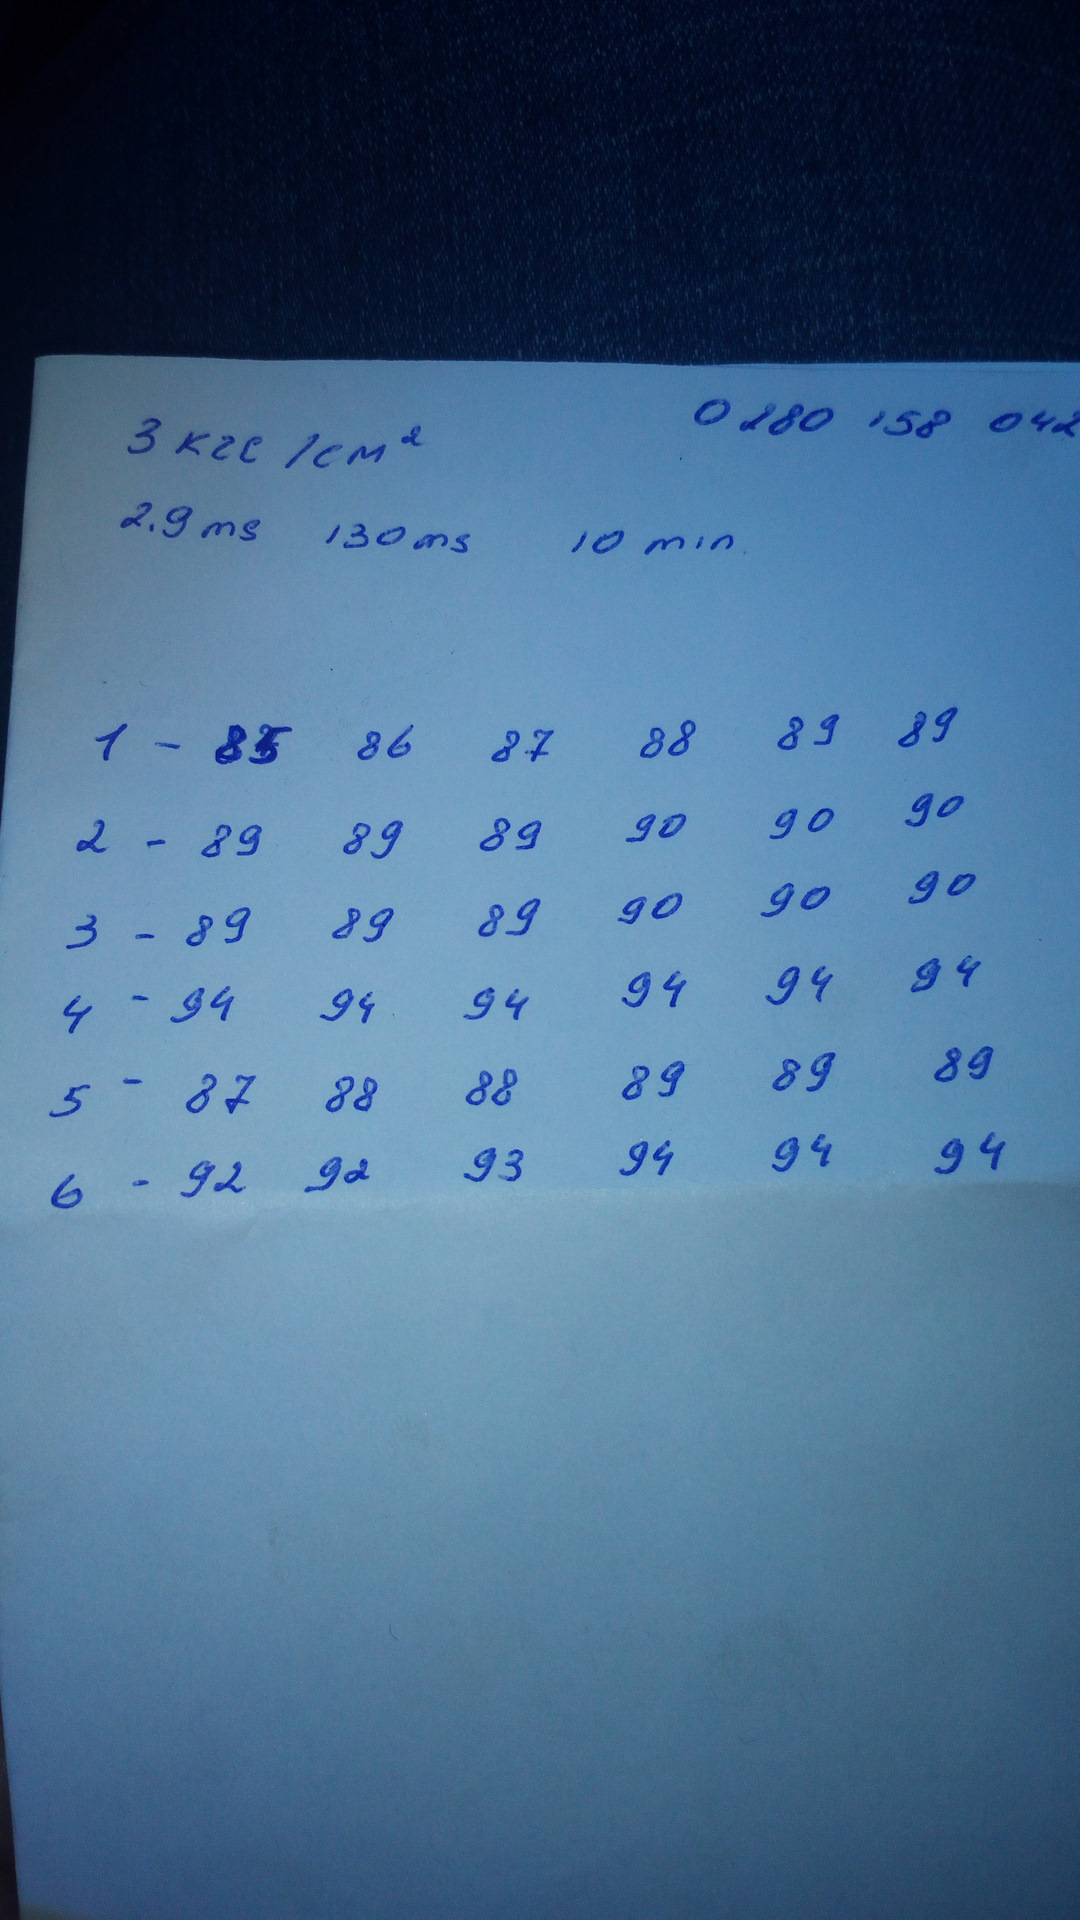 0280 158 042
3 кгс/см²
2.9 ms 130 ms 10 min.
1 - 85 86 87 88 89 89
2 - 89 89 89 90 90 90
3 - 89 89 89 90 90 90
4 - 94 94 94 94 94 94
5 - 87 88 88 89 89 89
6 - 92 92 93 94 94 94